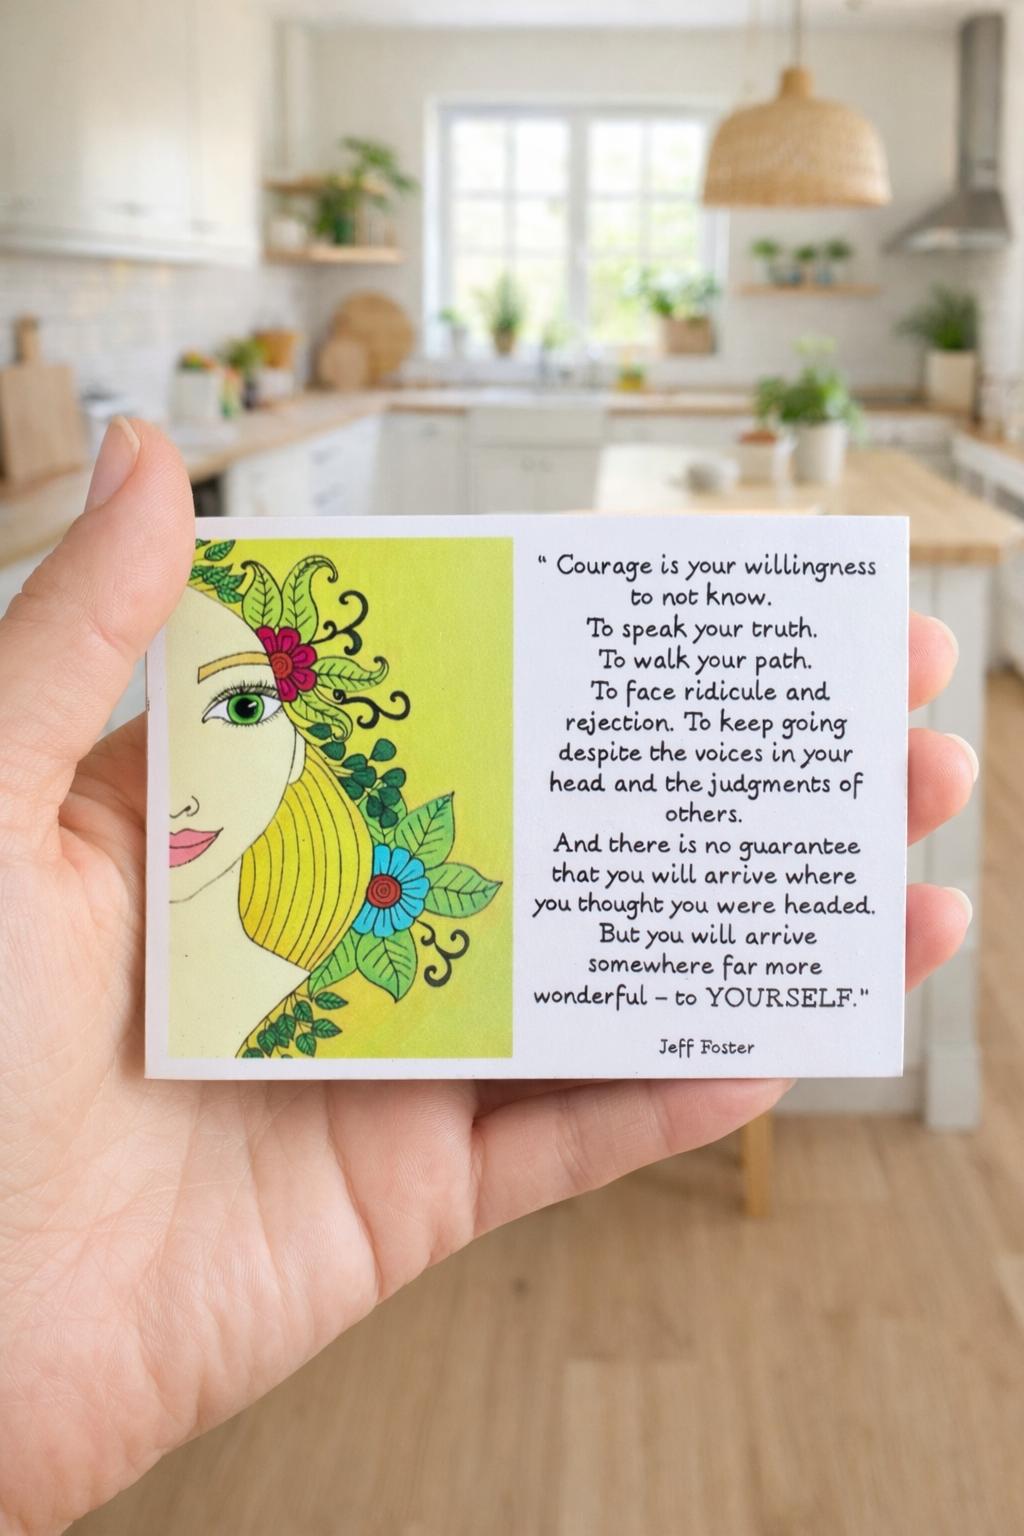 “ Courage is your willingness
to not know.
To speak your truth.
To walk your path.
To face ridicule and
rejection. To keep going
despite the voices in your
head and the judgments of
others.
And there is no guarantee
that you will arrive where
you thought you were headed.
But you will arrive
somewhere far more
wonderful – to YOURSELF."
Jeff Foster